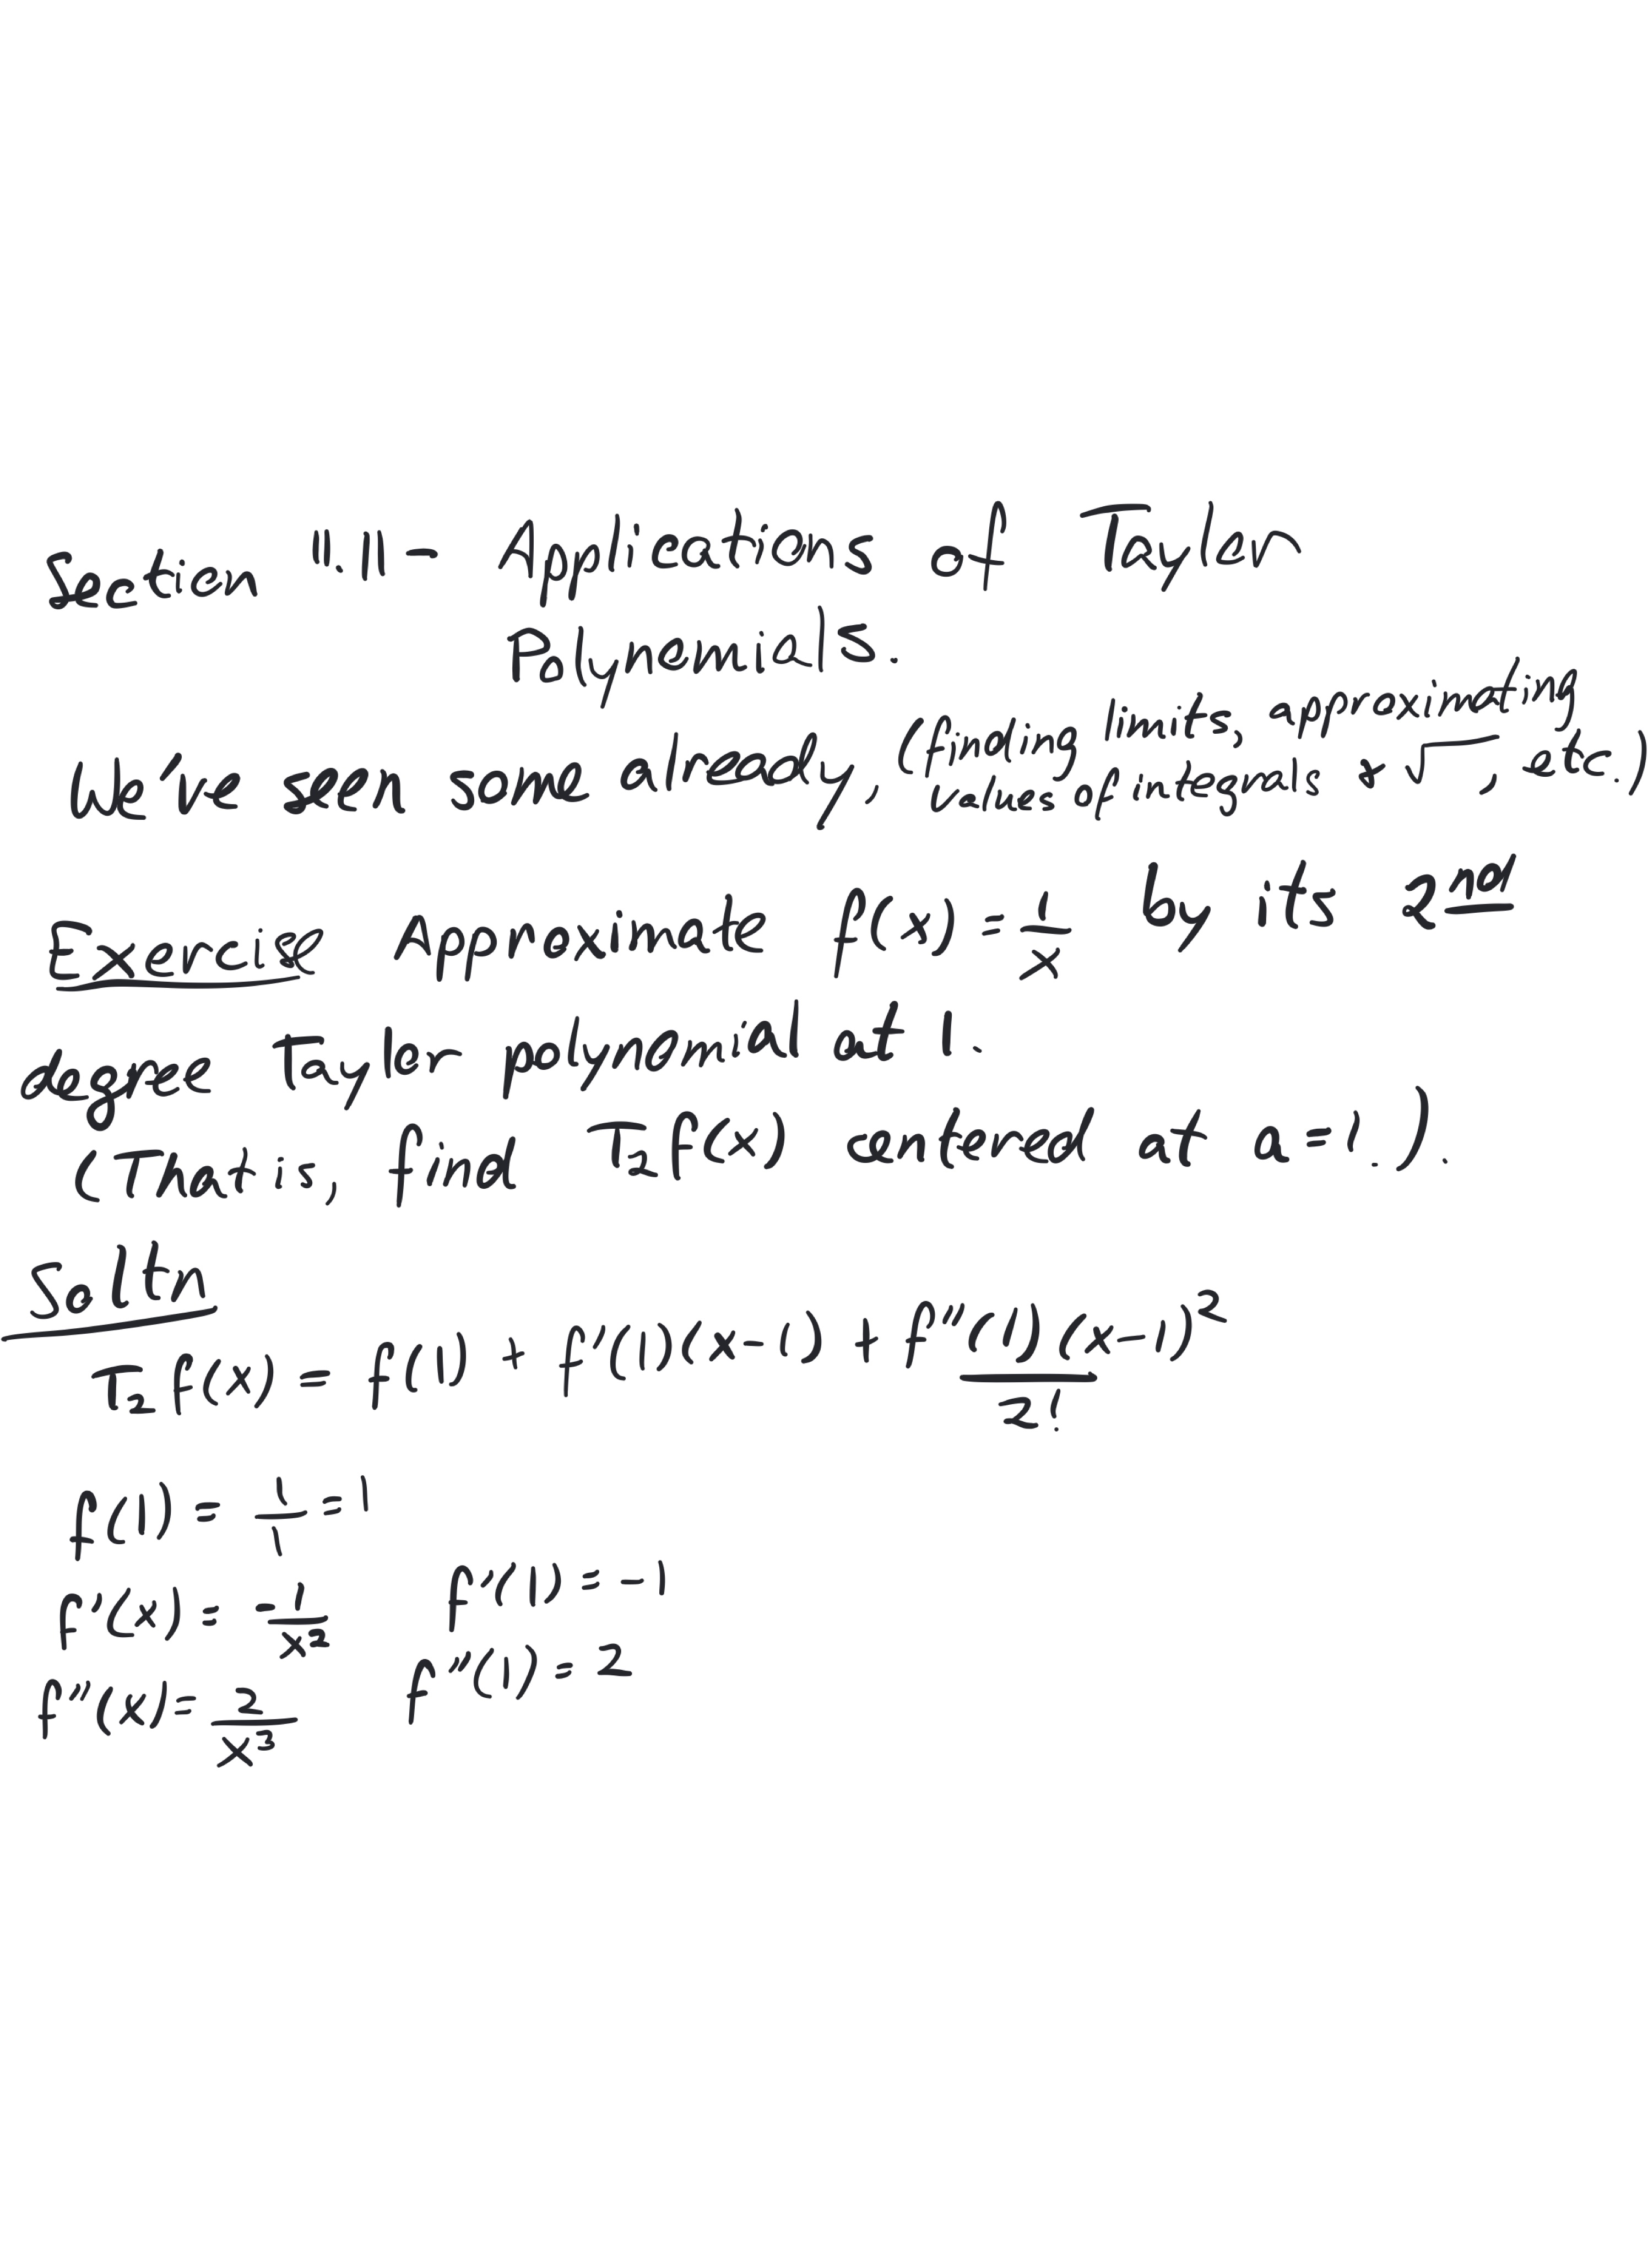 Section 11.11 - Applications of Taylor
Polynomials.
We've seen some already, (finding limits, approximating
values of integrals & √ , etc.)
Exercise Approximate f(x) = 1/x by its 2nd
degree Taylor polynomial at 1.
(That is, find T₂f(x) centered at a=1.).
Soltn
T₂f(x) = f(1) + f'(1)(x-1) + f''(1)(x-1)²/2!
f(1) = 1/1 = 1
f'(x) = -1/x² f'(1) = -1
f''(x) = 2/x³ f''(1) = 2